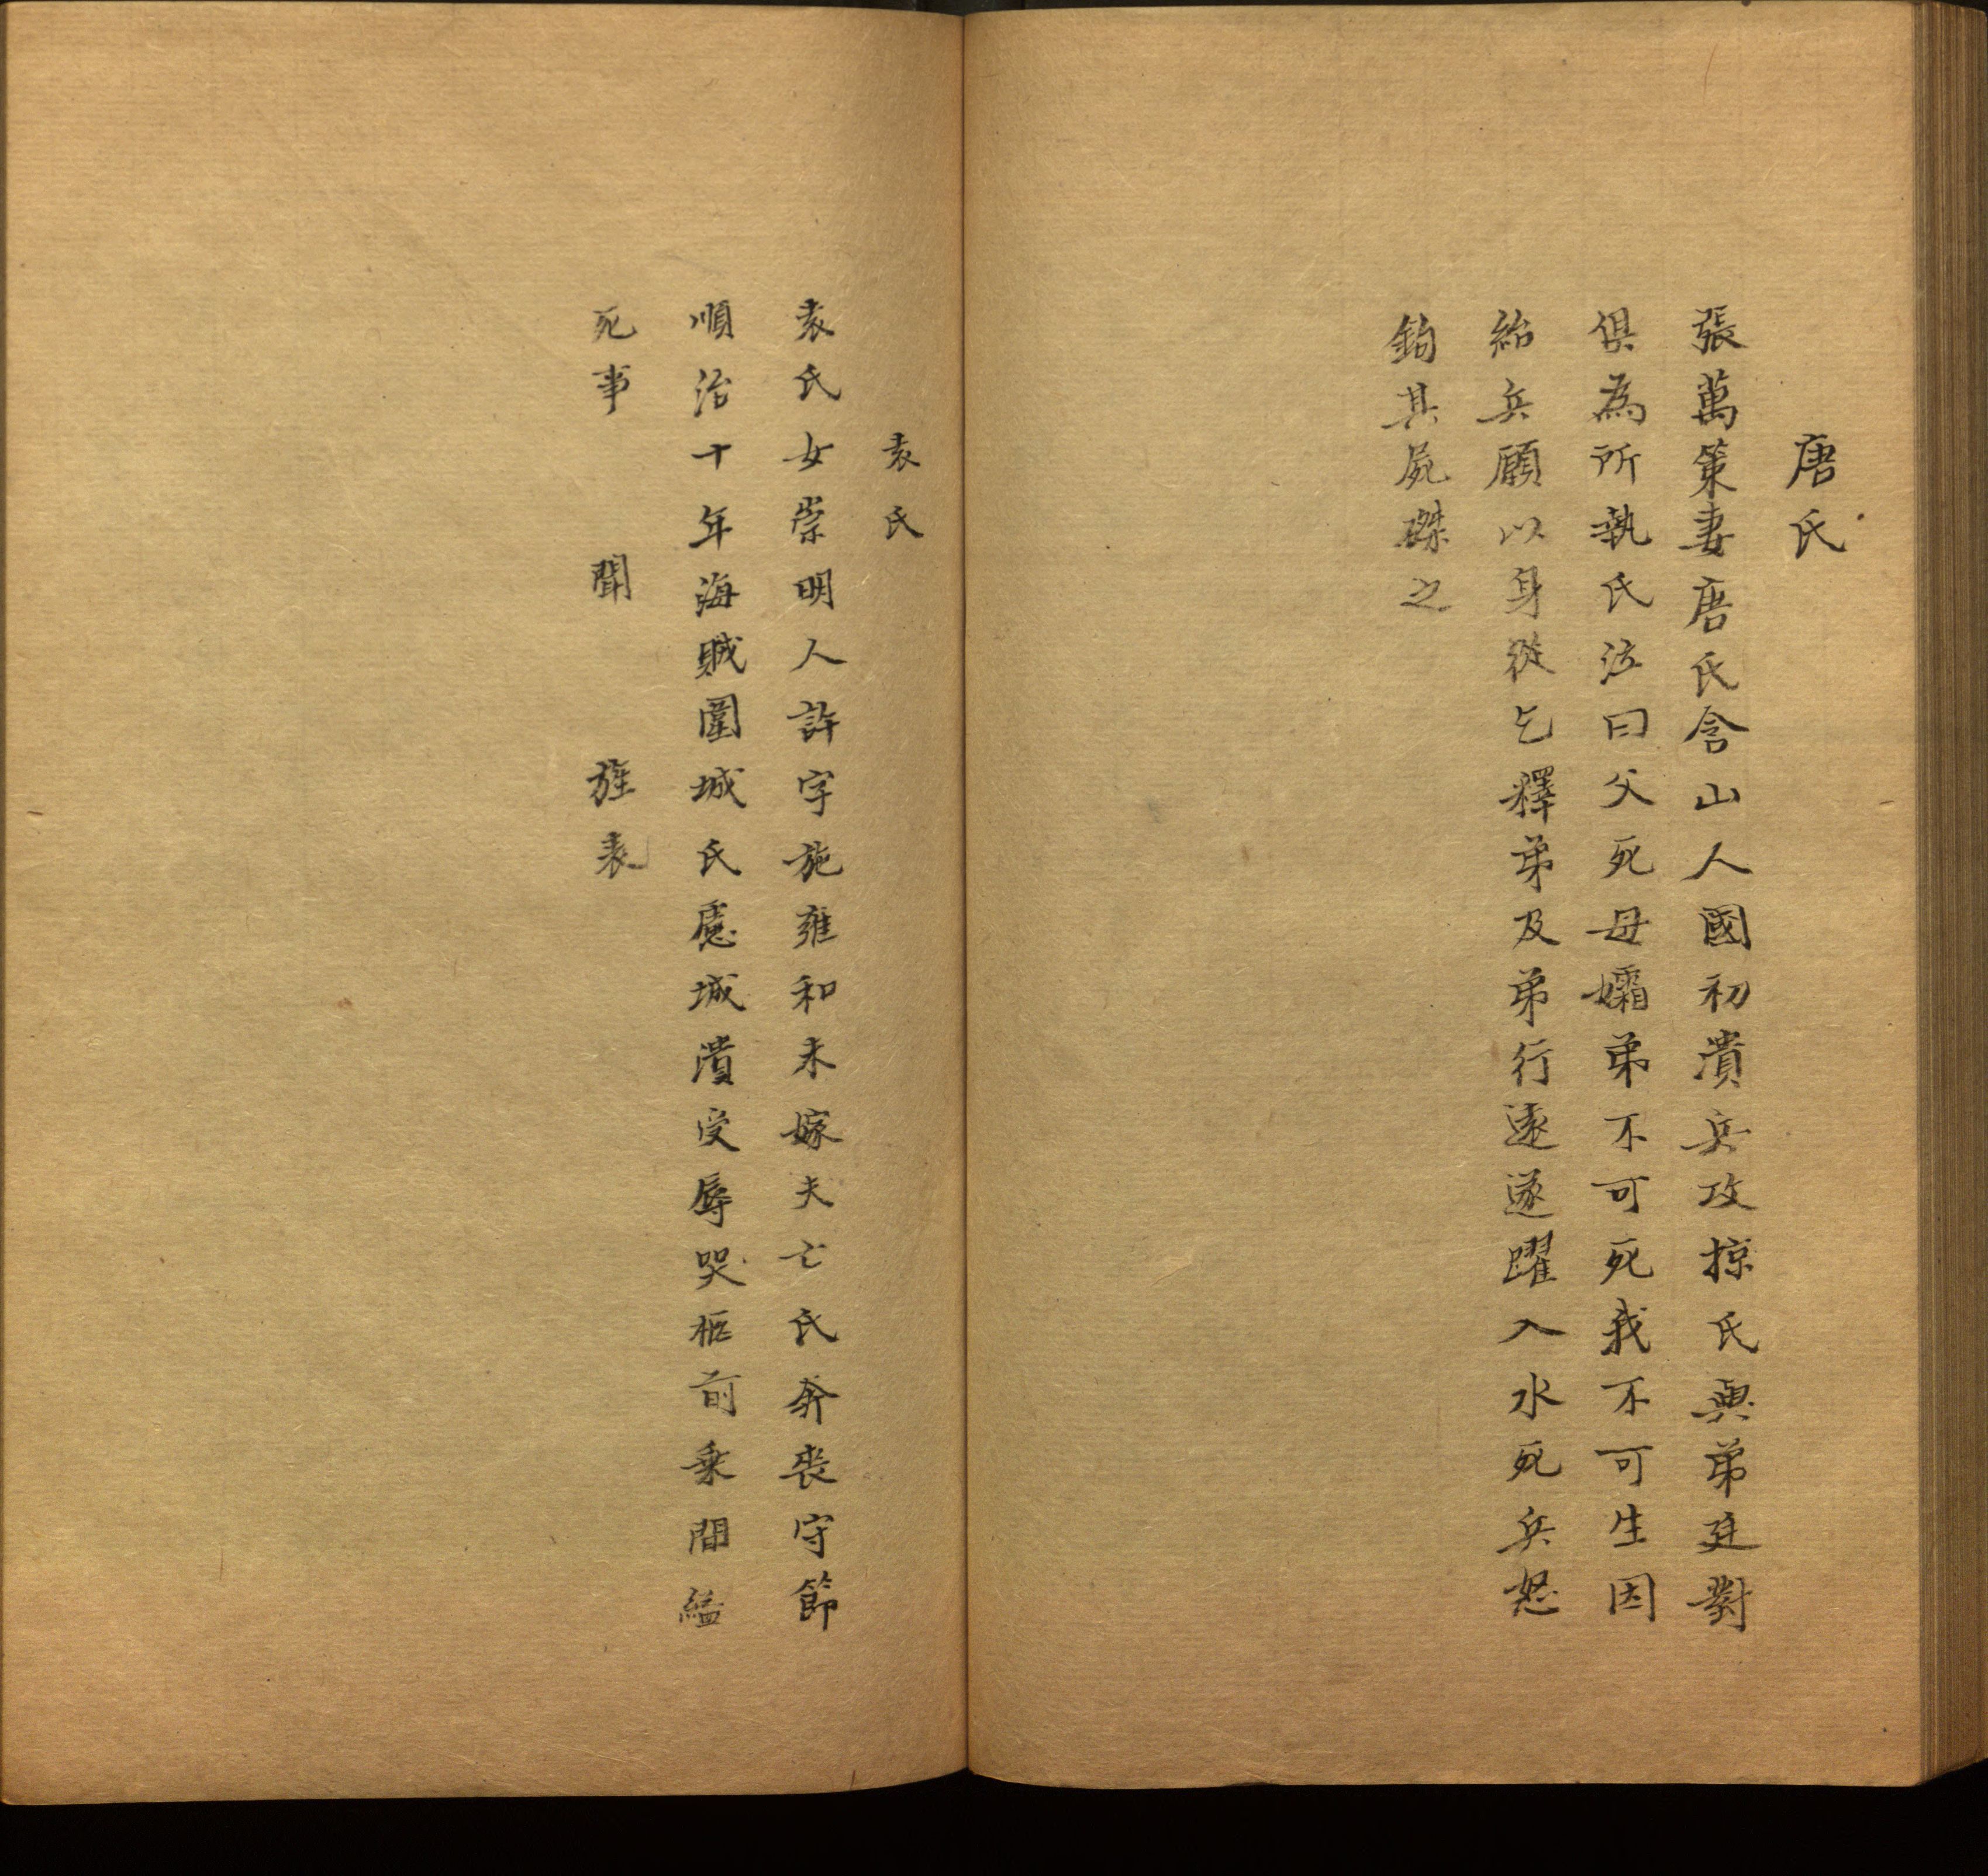 唐氏
張萬策妻唐氏含山人國初潰兵攻掠氏與弟廷對
俱為所執氏泣曰父死母孀弟不可死我不可生因
紿兵願以身從乞釋弟及弟行遠遂躍入水死兵怒
鈎其屍磔之
袁氏
袁氏女崇明人許字施雍和未嫁夫亡氏奔喪守節
順治十年海賊圍城氏慮城潰受辱哭柩前乗間縊
死事 聞 旌表